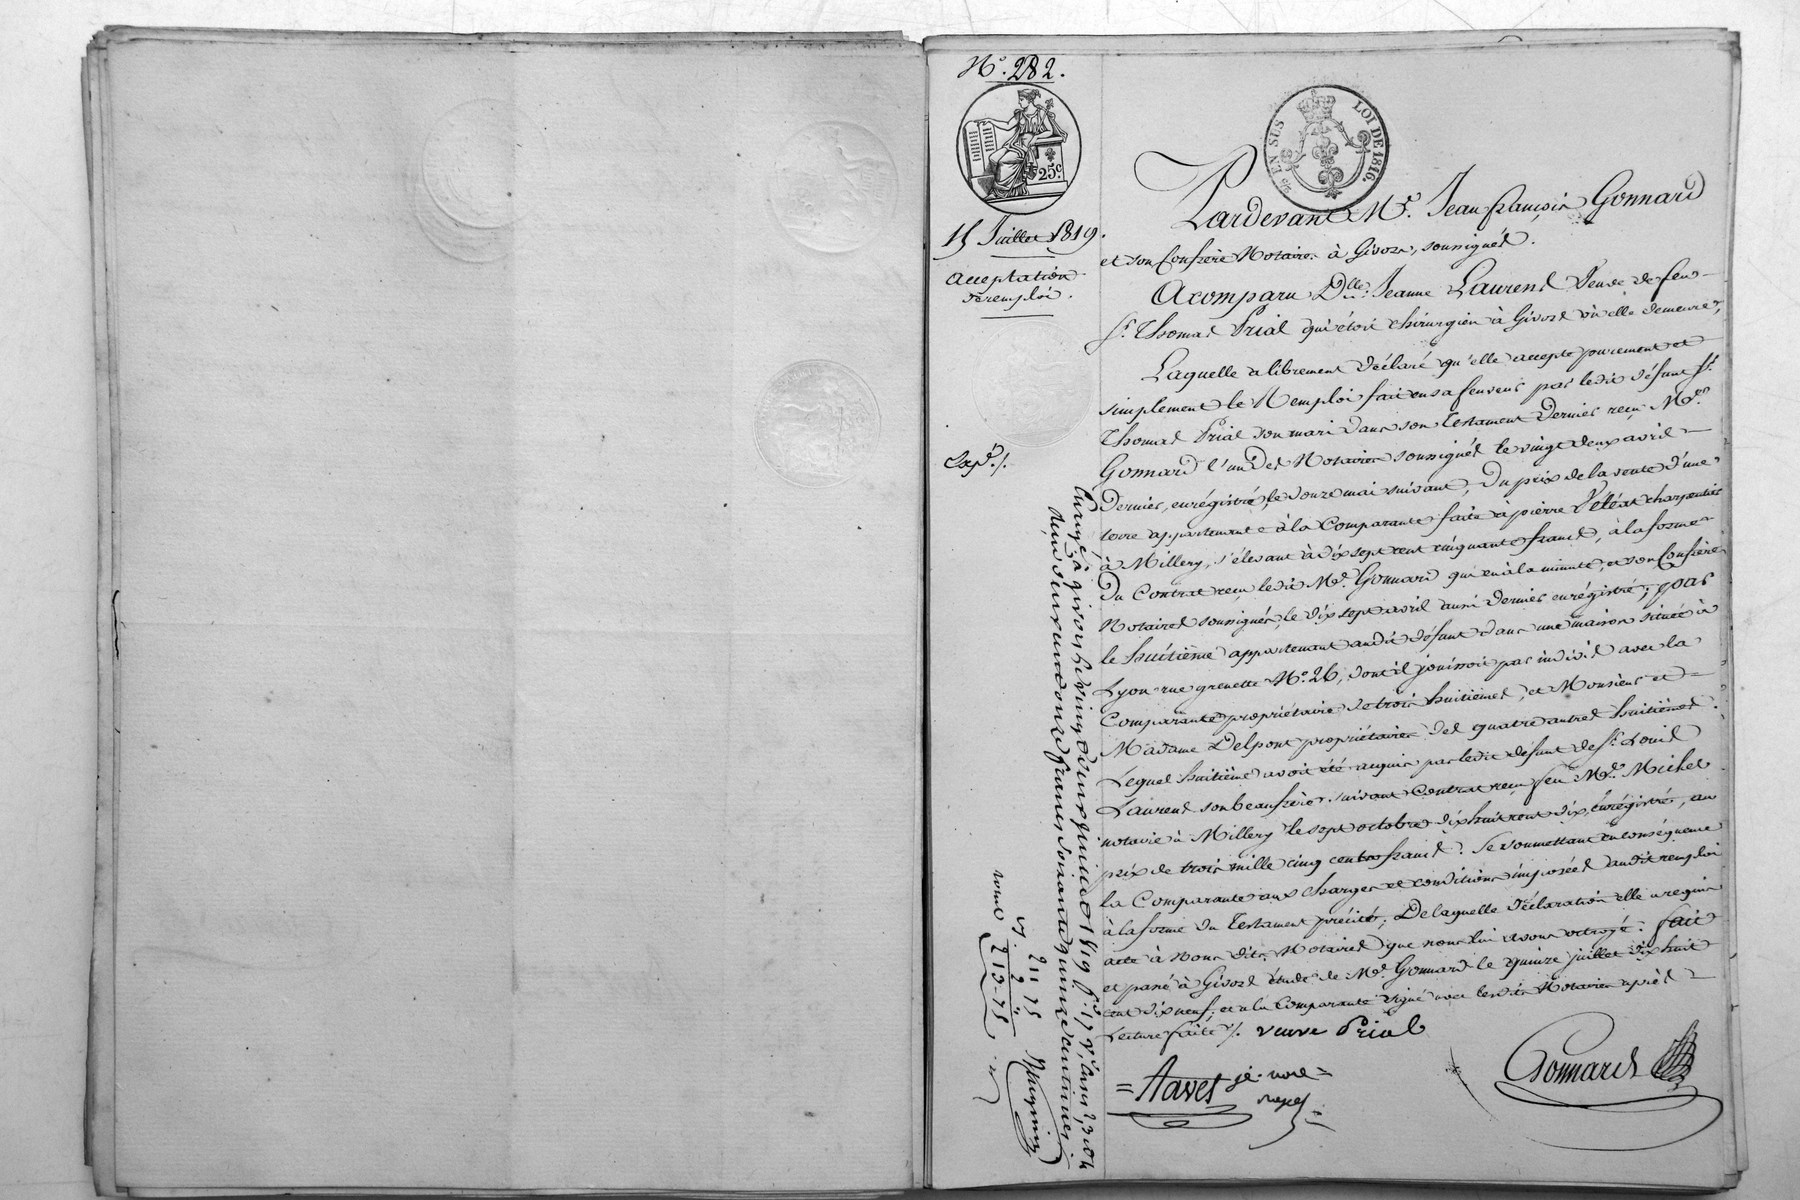 N.º 282.
25.c
EN SUS LOI DE 1816.
15 Juillet 1819.
Acceptation
de remploi.
Exp.é /.
Pardevant M.e Jean françois Gonnard
et son Confrère Notaires à Givors, soussignés.
A comparu D.lle Jeanne Laurend Veuve de feu
S.r Thomas Prial qui étoit chirurgien à Givors où elle demeure,
Laquelle a librement déclaré qu'elle accepte purement et
simplement le Remploi fait en sa faveur par ledit défunt S.r
Thomas Prial son mari dans son testament dernier reçu M.e
Gonnard l'un des Notaires soussignés le vingt deux avril
dernier, enrégistré le douze mai suivant, du prix de la vente d'une
terre appartenant e à la Comparante faite à pierre Véléat charpentier
à Millery, s'élevant à dix sept cent cinquante francs, à la forme
du Contrat reçu ledit M.e Gonnard qui en a la minute, et son Confrère
Notaires soussignés, le dix sept avril aussi dernier enrégistré; par
le huitième appartenant audit défunt dans une maison située à
Lyon rue grenette N.º 26, dont il jouissoit par indivis avec la
Comparante propriétaire de trois huitièmes, et Monsieur et
Madame Delpont propriétaires des quatre autres huitièmes.
Lequel huitième avoit été acquis par ledit défunt de S.r Louis
Laurend son beaufrère suivant Contrat reçu feu M.e Michel
notaire à Millery le sept octobre dix huit cent dix, Enrégistré, au
prix de trois mille cinq cents francs. Se soumettant en conséquence
la Comparante aux charges et conditions imposées audit remploi
à la forme du testament précité; De laquelle déclaration elle a requis
acte à Nous dits Notaires que nous lui avons octroyé. fait
et passé à Givors étude de M.e Gonnard le quinze juillet dix huit
cent dix neuf, et a la Comparante signé avec lesdits Notaires après
Lecture faite /. veuve Prial
Favet
Gonnard
Enregé à givors le vingt deux juillet 1819 f.o 17 v.o cases 2, 3 et 4
reçu deux cent onze francs soixante quinze centimes
211 75
2 "
213-75